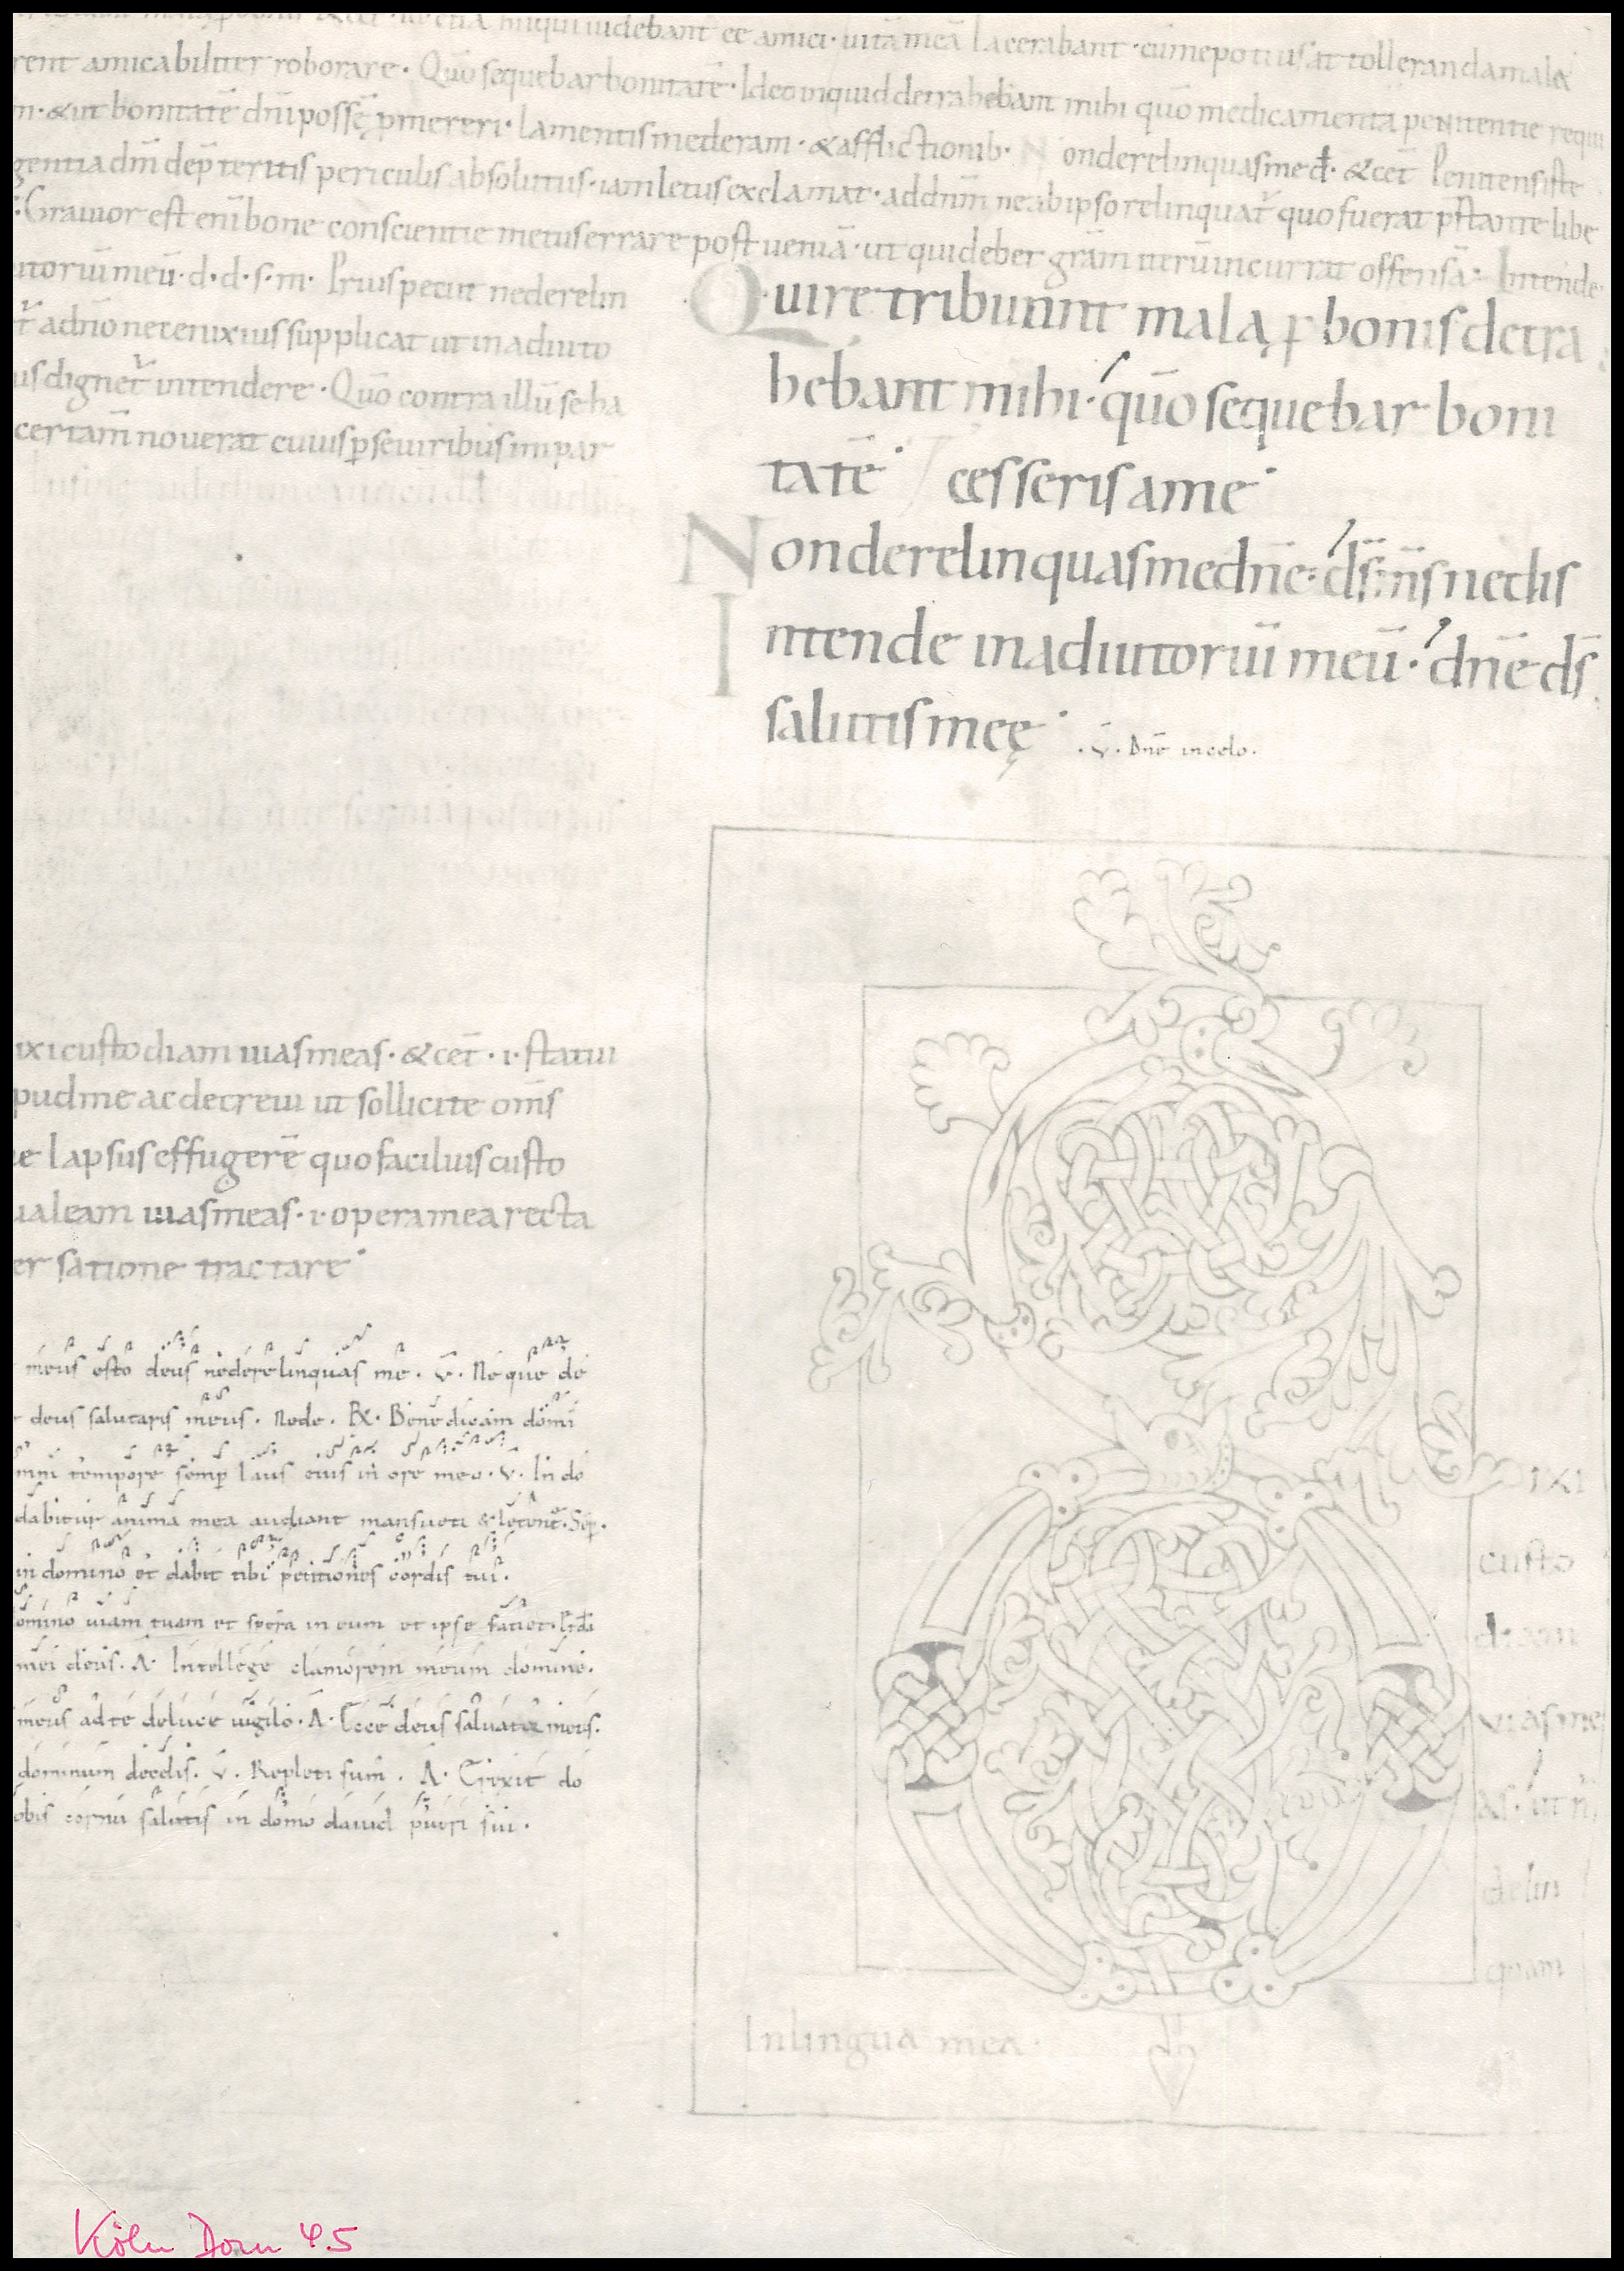 ee amici · uitā meā lacerabant · cū me potius at tollerandamala
rent amicabiliter roborare · Qūo sequebar bonitatē · Ideo inquid detrahebant mihi qūo medicamenta penitentie requi
m · & ut bonitatē dñi possē pmereri · lamentis mederam · & afflictionib · N onderelinquasme d̄ · & cet̄ Penitens iste
gentia dñi dep̄teritis periculis absolutus · iam letus exclamat · ad dnm̄ ne ab ipso relinquat̄ quo fuerat p̄stante libe
Grauior est enī bone conscientie metus errare post ueniā · ut qui debet grām iterū incurrat offensā · Intende
utoriū meū · d · d · s · m · Prius petiit ne derelin
adhõ ne tenixius supplicat ut in adiuto
us dignet̄ intendere · Qūo contra illū se ha
certam̄ nouerat cuius p se uiribus impar
Qui retribuunt mala p bonis detra
hebant mihi · qūo sequebar boni
tatē · / cesseris a me ·
Non derelinquas me dn̄e · ds̄ m̄s ne dis
Intende in adiutoriū meū · dn̄e ds̄
salutis meę · . v̄ . Dn̄e in celo .
ixi custodiam uias meas · & cet̄ · i · statui
pud me ac decreui ut sollicite om̄s
e lapsus effugerē quo facilius custo
ualeam uias meas · i · opera mea recta
er satione tractare ·
meus esto deus ne derelinquas me . v̄ . Neque de
deus salutaris meus . Nede . R̄ . Benedicam domi
mni tempore semp laus eius in ore meo . v̄ . In do
dabitur anima mea audiant mansueti & letent̄ . Sēp .
in domino et dabit tibi petitiones cordis tui .
omino uiam tuam et spera in eum et ipse faciet .
mei deus . A . Intellege clamorem meum domine .
meus ad te deluce uigilo . A . Ecce deus saluator meus .
dominum decelis . v̄ . Repleti sum̄ . A . Erexit do
obis cornu salutis in domo dauid pueri sui .
IXI
custo
diam
vias me
as · ut n̄
delin
quam
In lingua mea ·
Köln Dom 45